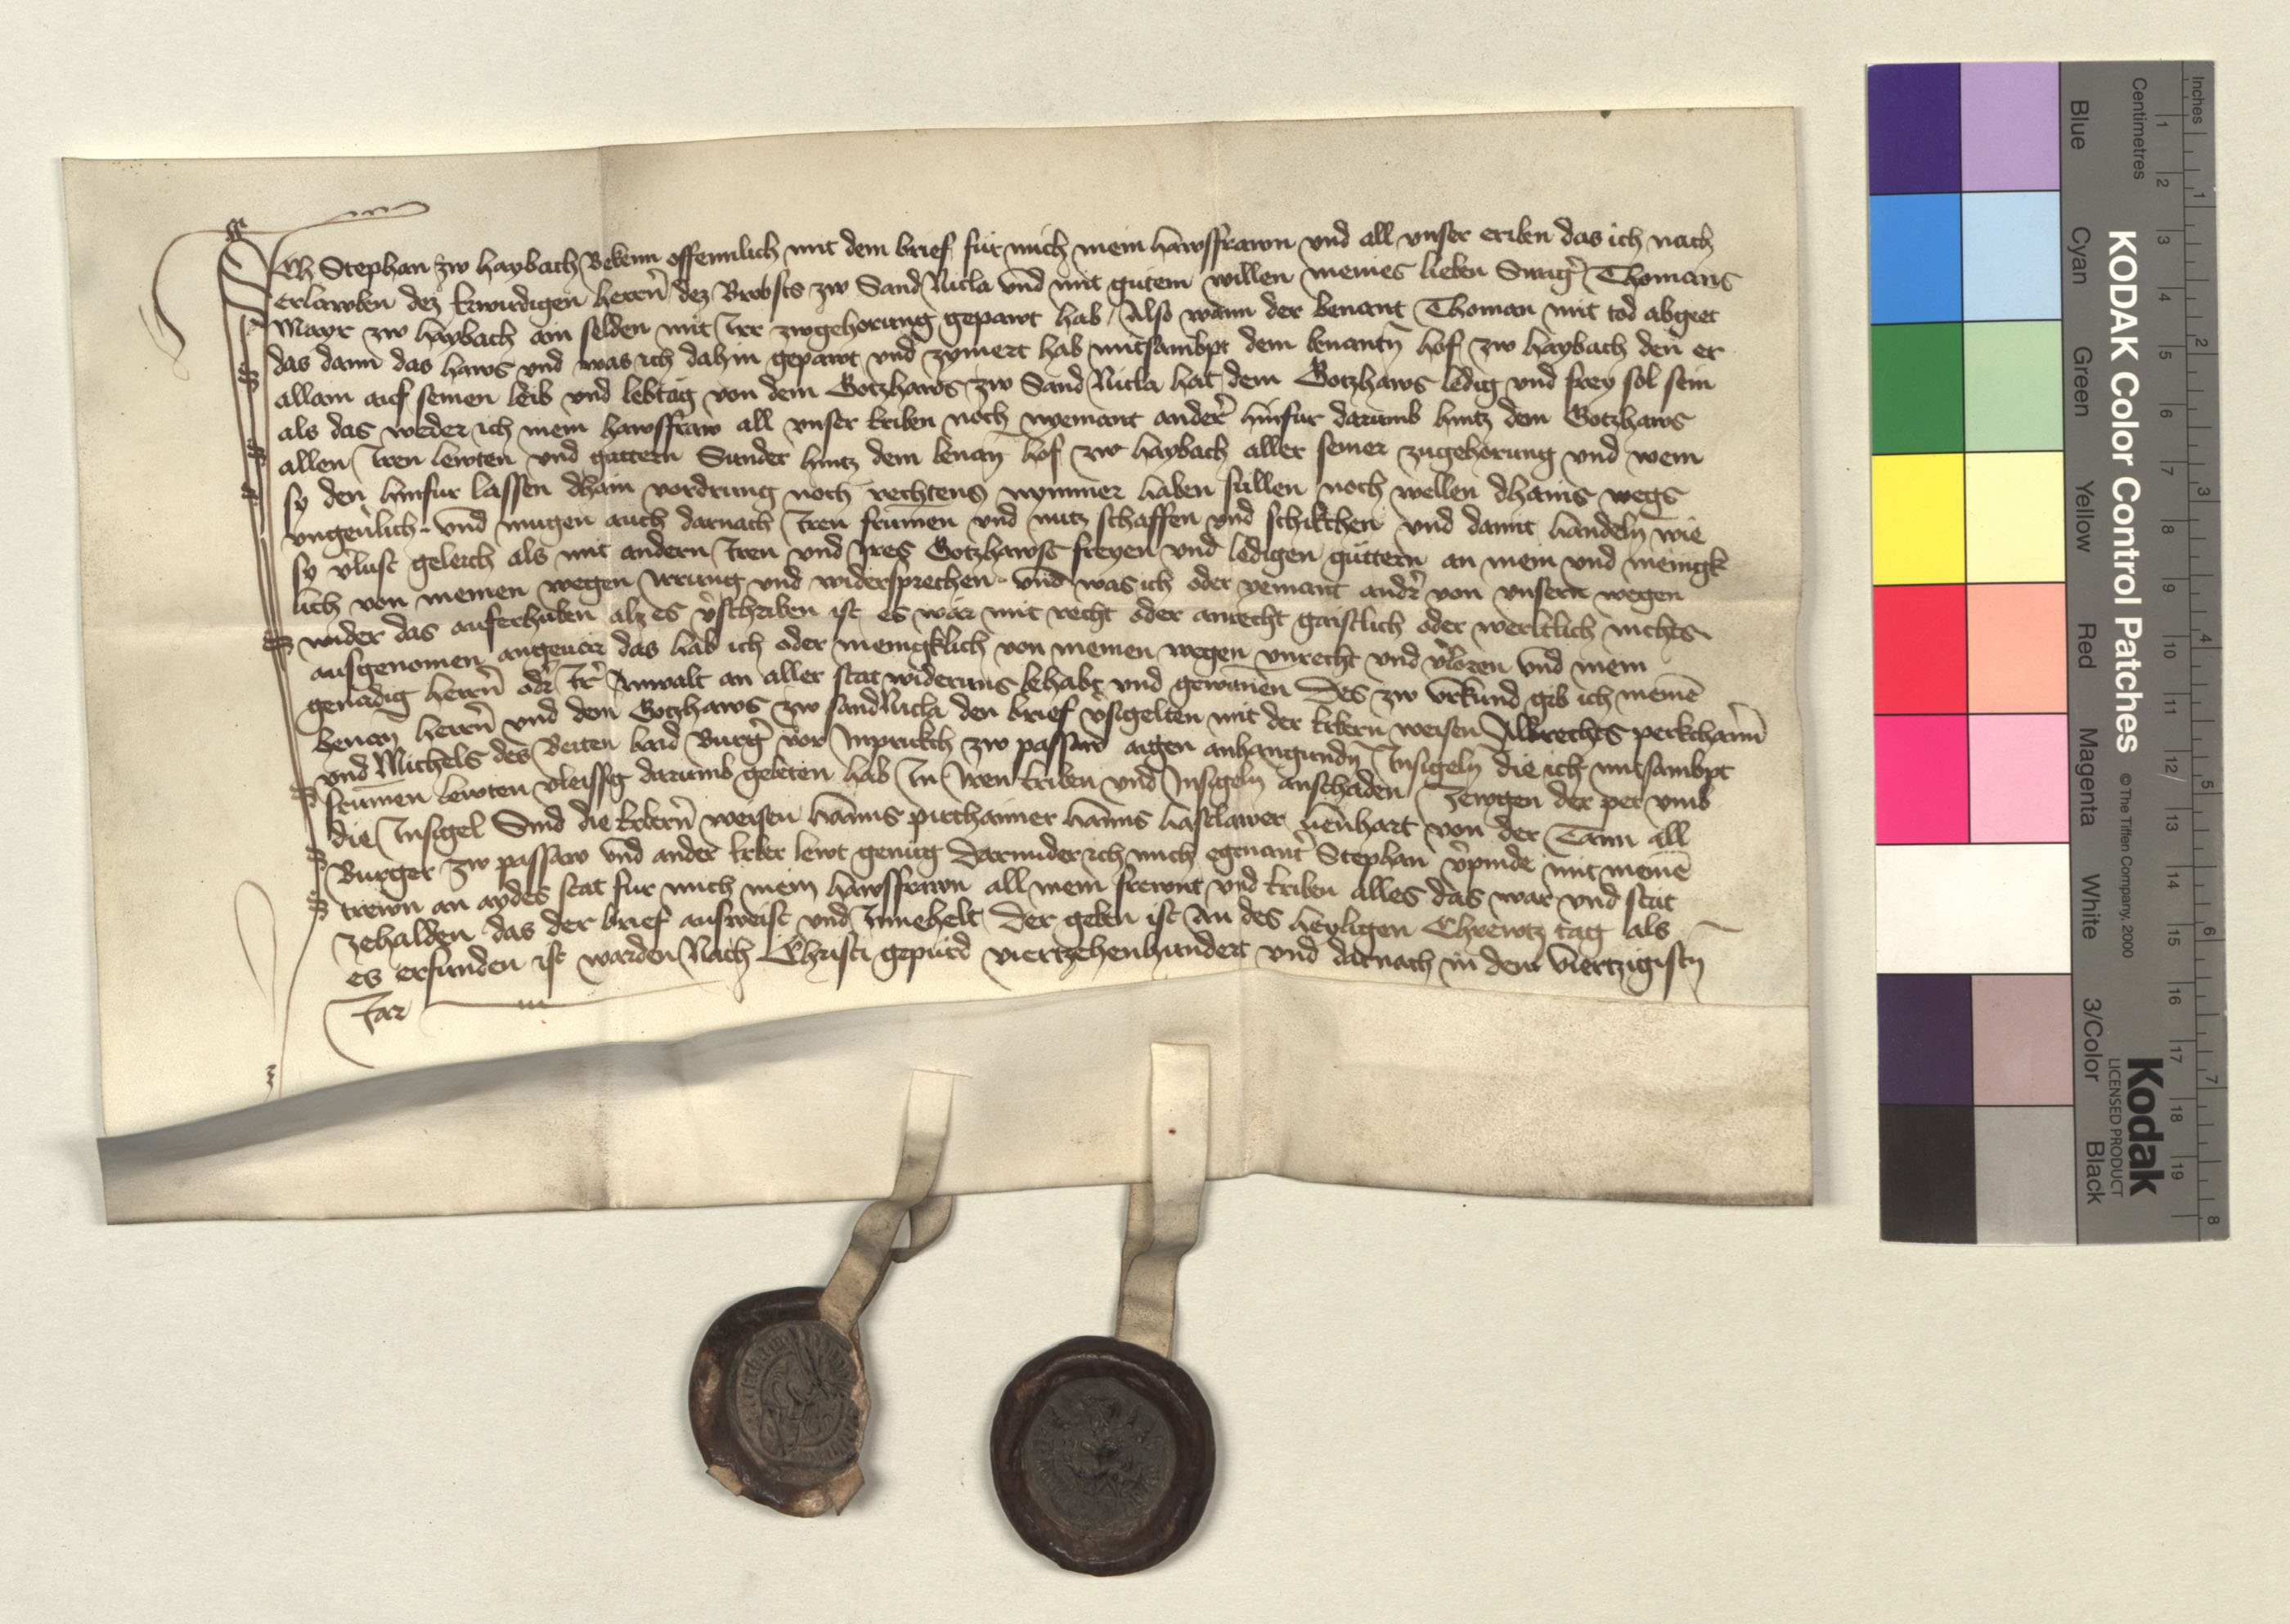 Ich Stephan zw haybach Bekenn offennlich mit dem brief fur mich mein hawsfrawn vnd all vnser eriben das ich nach
erlawben dez Erwirdigen herrn dez Brobsts zw Sand Nicla vnd mit gutem willen meines lieben Swagr Thomans
Mayr zw haybach ain selden mit Irr zwgehorung gepawt hab Also wann der benant Thoman mit tod abgeet
das dann das haws vnd was ich dahin gepawt vnd zymert hab mitsambpt dem benantn hof zw haybach den er
allain auf seinen leib vnd lebtag von dem Gotzhaws zw Sand Nicla hat dem Gotzhaws ledig vnd frey sol sein
als das weder ich mein hawsfraw all vnser Eriben noch nyemant ander hinfur darumb hintz dem Gotzhaws
allen Iren lewten vnd guttern Sunder hintz dem benan hof zw haybach aller seiner zugehorung vnd wem
sy den hinfur lassen dhain vordrung noch rechtens nymmer haben sullen noch wellen dhains wegs
vngeulich vnd mugen auch darnach Iren frumen vnd nutz schaffen vnd schikchen vnd damit handeln wie
sy vlust geleich als mit andern Iren vnd Ires Gotzhawse freyen vnd ledigen guttern an mein vnd menigk
lich von meinen wegen Irrung vnd widersprechen vnd was ich oder yemant andr von vnsern wegen
wider das auferhuben alz es vschriben ist es wär mit recht oder anrecht gaistlich oder werltlich nichts
ausgenomen angeuer das hab ich oder menigklich von meinen wegen vnrecht vnd vloren vnd mein
genadig herrn odr Ir Anwalt an aller stat widerums behabt vnd gewunen Des zw vrkund gib ich meine
benen herrn vnd dem Gotzhaws zw sand Nicla den brief vsigelten mit der Erbern weisen Albrechts perkchaim
vnd Michels des Beiten baid Burgr vor Inprukch zw passaw aigen anhangundn Insigeln die ich mitsambpt
frumen lewten vleissig darumb gebeten hab In Iren Eriben vnd Insigeln anschaden Zewgen der pet vmb
die Insigel Sind die Erbern weisen hanns purchaimer hanns haselawer lienhart von der Tann all
Burger zw passaw vnd ander Erber lewt genug Darunder ich mich egenant Stephan vpinde mit meine
trewn an aydes stat fur mich mein hawsfrawn all mein frewnt vnd Eriben alles das war vnd stat
zehalden das der brief ausweist vnd Innehelt Der geben ist An des heyligen Chrewtz tag als
es erfunden ist warden Nach Christi gepurd viertzehenhundert vnd darnach in dem viertzigistn
Jar
KODAK Color Control Patches © The Tiffen Company, 2000
Kodak
LICENSED PRODUCT
Inches 1 2 3 4 5 6 7 8
Centimetres 1 2 3 4 5 6 7 8 9 10 11 12 13 14 15 16 17 18 19
Blue Cyan Green Yellow Red Magenta White 3/Color Black